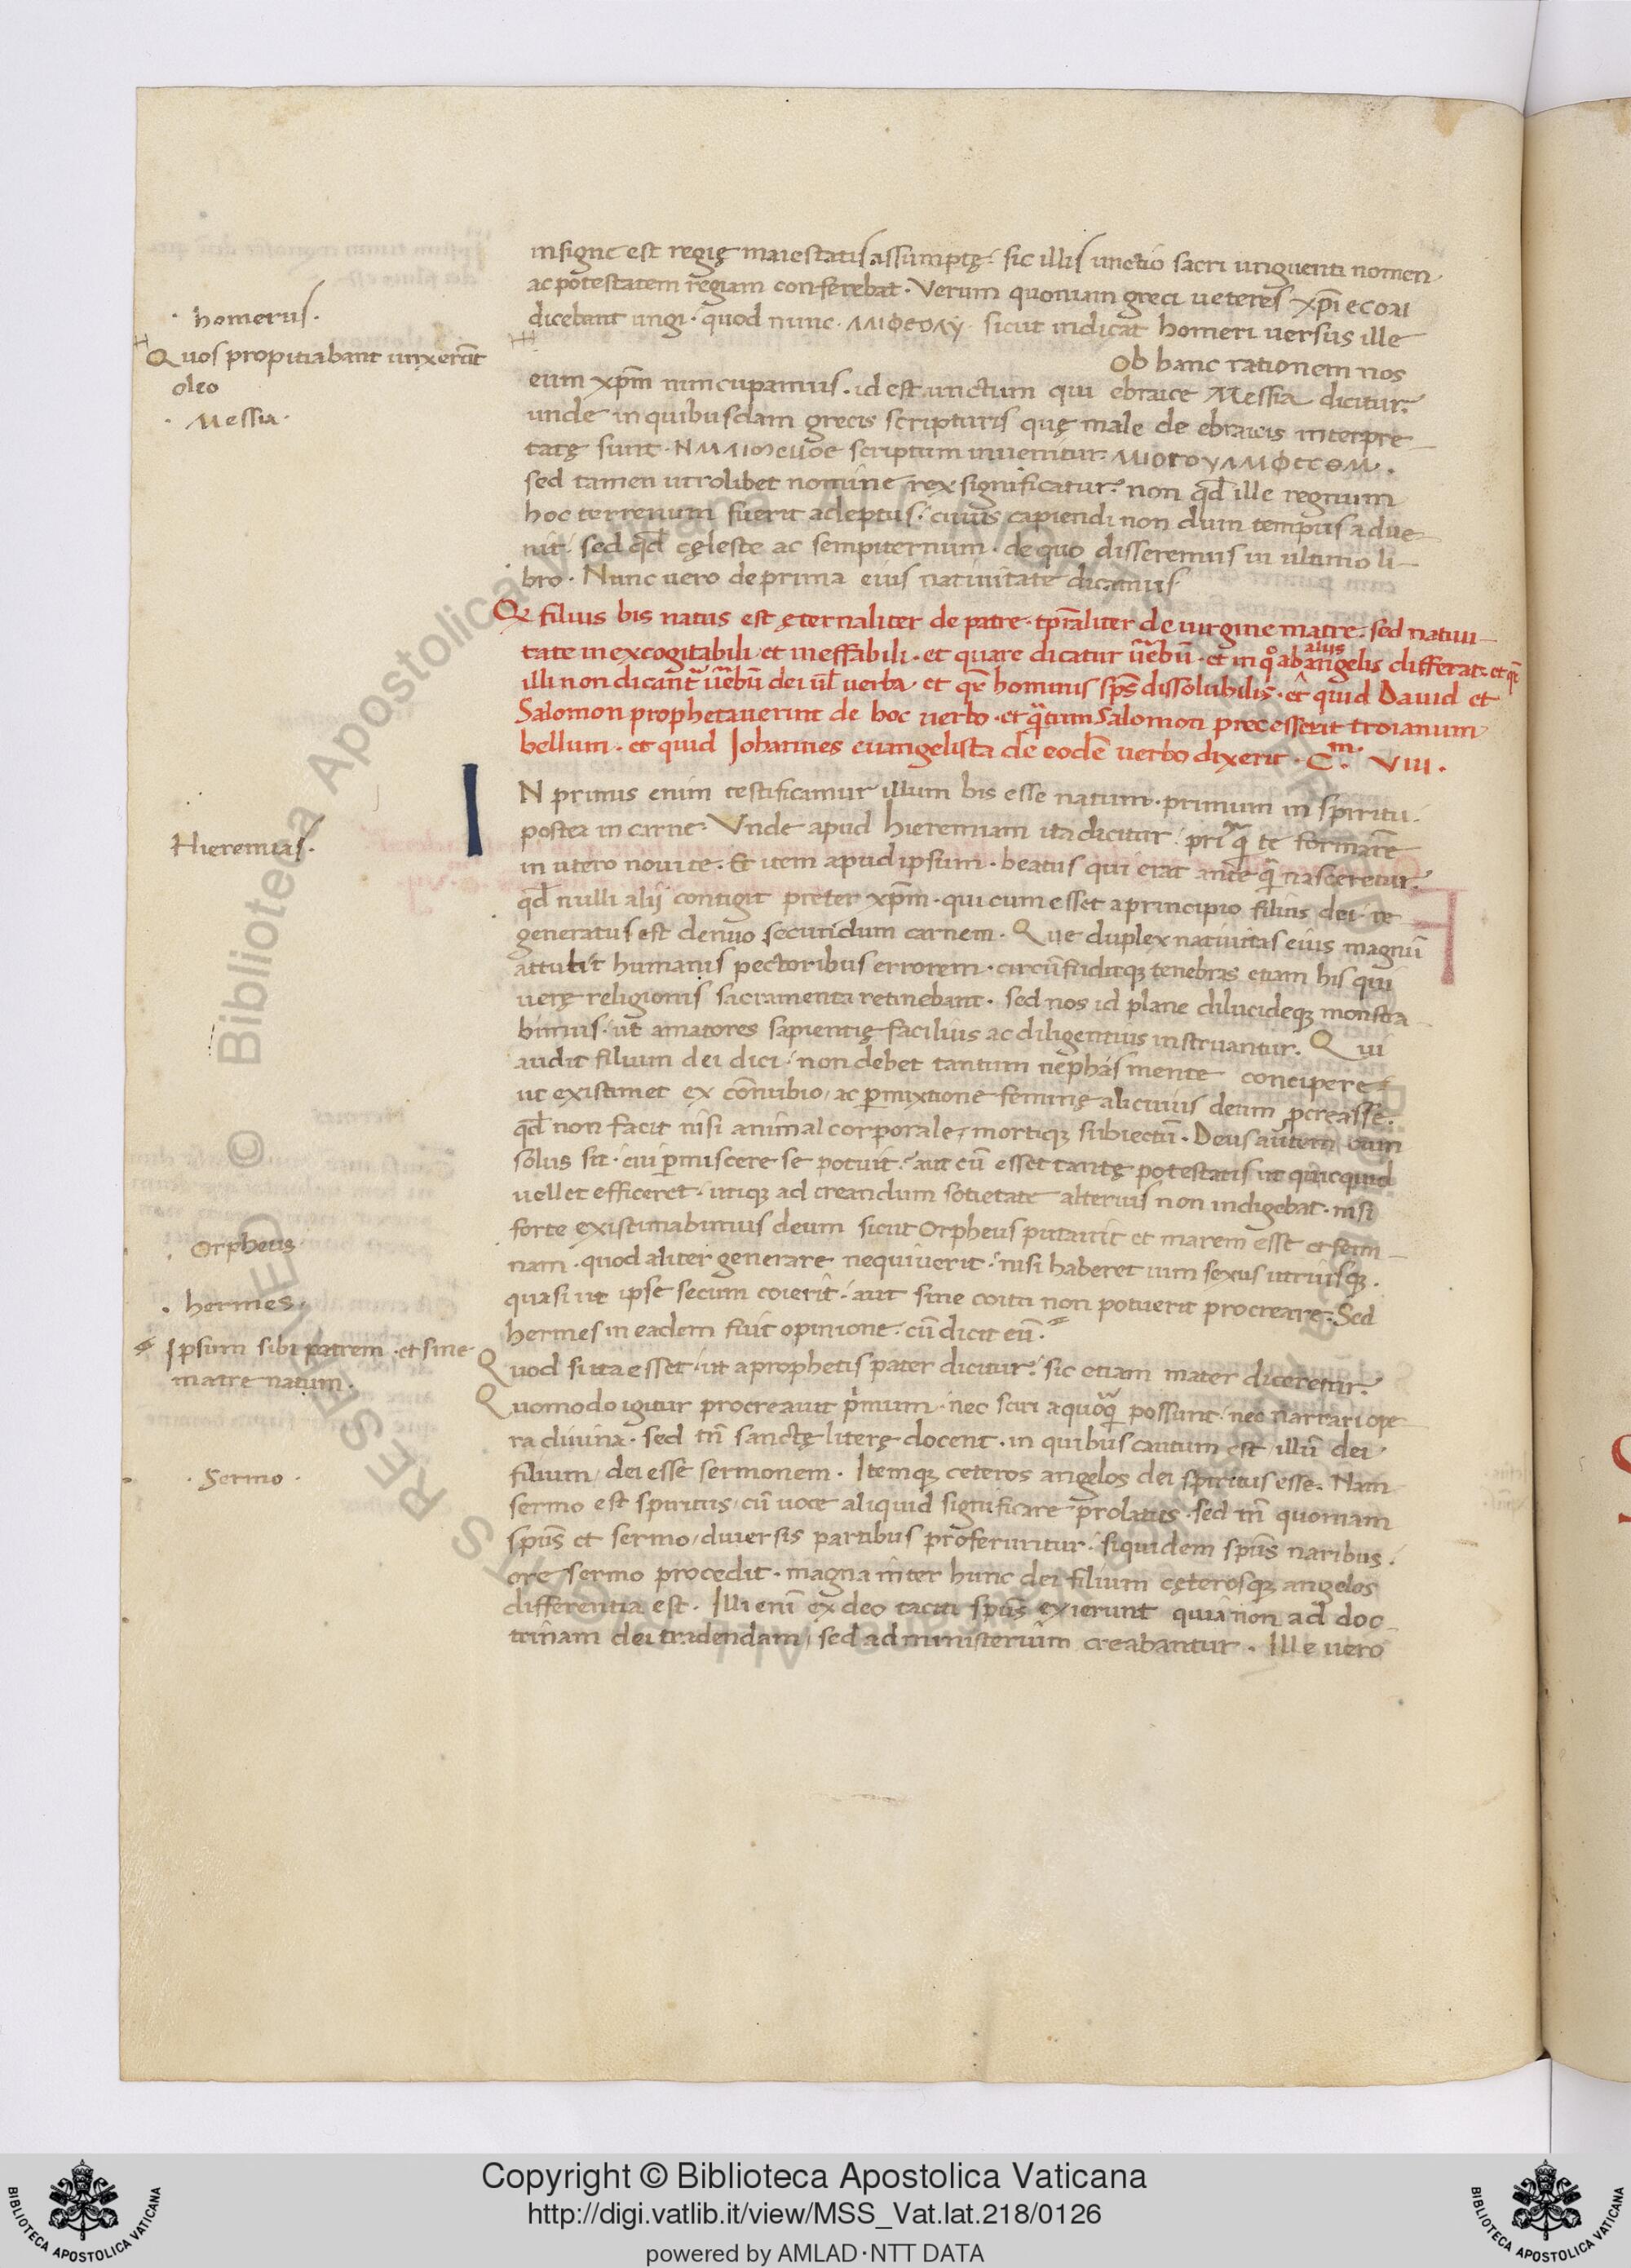 insigne est regię maiestatis assumptę. sic illis unctio sacri unguenti nomen
ac potestatem regiam conferebat. Verum quoniam greci ueteres xp̄iecoai
dicebant ungi. quod nunc. sicut indicat homeri uersus ille
· homerus ·
Quos propitiabant unxerūt
oleo
· Messia ·
Ob hanc rationem nos
eum xp̄m nuncupamus. id est unctum qui ebraice Messia dicitur.
unde in quibusdam grecis scripturis quę male de ebraicis interpre-
tatę sunt. scriptum inuenitur.
sed tamen utrolibet nomine rex significatur. non qđ ille regnum
hoc terrenum fuerit adeptus. cuius capiendi non dum tempus adue-
nit. sed qđ cęleste ac sempiternum. de quo disseremus in ultimo li-
bro. Nunc uero de prima eius natiuitate dicamus
Q filius bis natus est ęternaliter de patre. tp̄raliter de uirgine matre. sed natiui-
tate inexcogitabili et ineffabili. et quare dicatur ūebū. et in qo ab alijs angelis differat. et qr̄
illi non dicant ūebū dei ul uerba. et qr̄ hominis sps̄ dissolubilis. et quid Dauid et
Salomon prophetauerint de hoc uerbo. et qtum Salomon precesserit troianum
bellum. et quid Johannes euangelista de eodē uerbo dixerit. C.m VIII.
IN primis enim testificamur illum bis esse natum. primum in spiritu.
postea in carne. Vnde apud hieremiam ita dicitur. priq̄ te formare
Hieremias.
in utero noui te. Et item apud ipsum. beatus qui erat anteq̄ nasceretur.
qđ nulli alij contigit preter xp̄m. qui cum esset a principio filius dei. re
generatus est denuo secundum carnem. Que duplex natiuitas eius magnū
attulit humanis pectoribus errorem. circūfuditq; tenebras etiam his qui
uerę religionis sacramenta retinebant. sed nos id plane dilucideq; monstra
bimus. ut amatores sapientię facilius ac diligentius instruantur. Qui
audit filium dei dici. non debet tantum nephas mente concipere
ut existimet ex cōnubio, ac pmixtione feminę alicuius deum pcreasse.
qđ non facit nisi animal corporale, mortiq; subiectū. Deus autem cum
solus sit. cui pmiscere se potuit. aut cū esset tantę potestatis ut quicquid
uellet efficeret. utiq; ad creandum sotietate alterius non indigebat. nisi
forte existimabimus deum sicut Orpheus putauit et marem esse et femi-
· Orpheus
nam. quod aliter generare nequiuerit. nisi haberet uim sexus utriusq;.
quasi ut ipse secum coierit. aut sine coitu non potuerit procreare. Sed
· hermes.
hermes in eadem fuit opinione. cū dicit eū.
Ipsum sibi patrem. et sine
matre natum.
Quod si ita esset. ut a prophetis pater dicitur. sic etiam mater diceretur.
Quomodo igitur procreauit pimum. nec sciri a quoq̄ possunt. nec narrari ope
ra diuina. sed tn̄ sanctę literę docent. in quibus cautum est illū dei
filium, dei esse sermonem. Itemq; ceteros angelos dei spiritus esse. Nam
· Sermo ·
sermo est spiritus, cū uoce aliquid significare prolatus. sed tn̄ quoniam
sps̄ et sermo, diuersis partibus proferuntur. siquidem sps̄ naribus.
ore sermo procedit. magna inter hunc dei filium cęterosq; angelos
differentia est. Illi eni ex deo taciti sps̄ exierunt quia non ad doc-
trinam dei tradendam, sed ad ministerium creabantur. Ille uero
Biblioteca Apostolica Vaticana
Copyright © Biblioteca Apostolica Vaticana
http://digi.vatlib.it/view/MSS_Vat.lat.218/0126
powered by AMLAD·NTT DATA
BIBLIOTECA APOSTOLICA VATICANA
BIBLIOTECA APOSTOLICA VATICANA